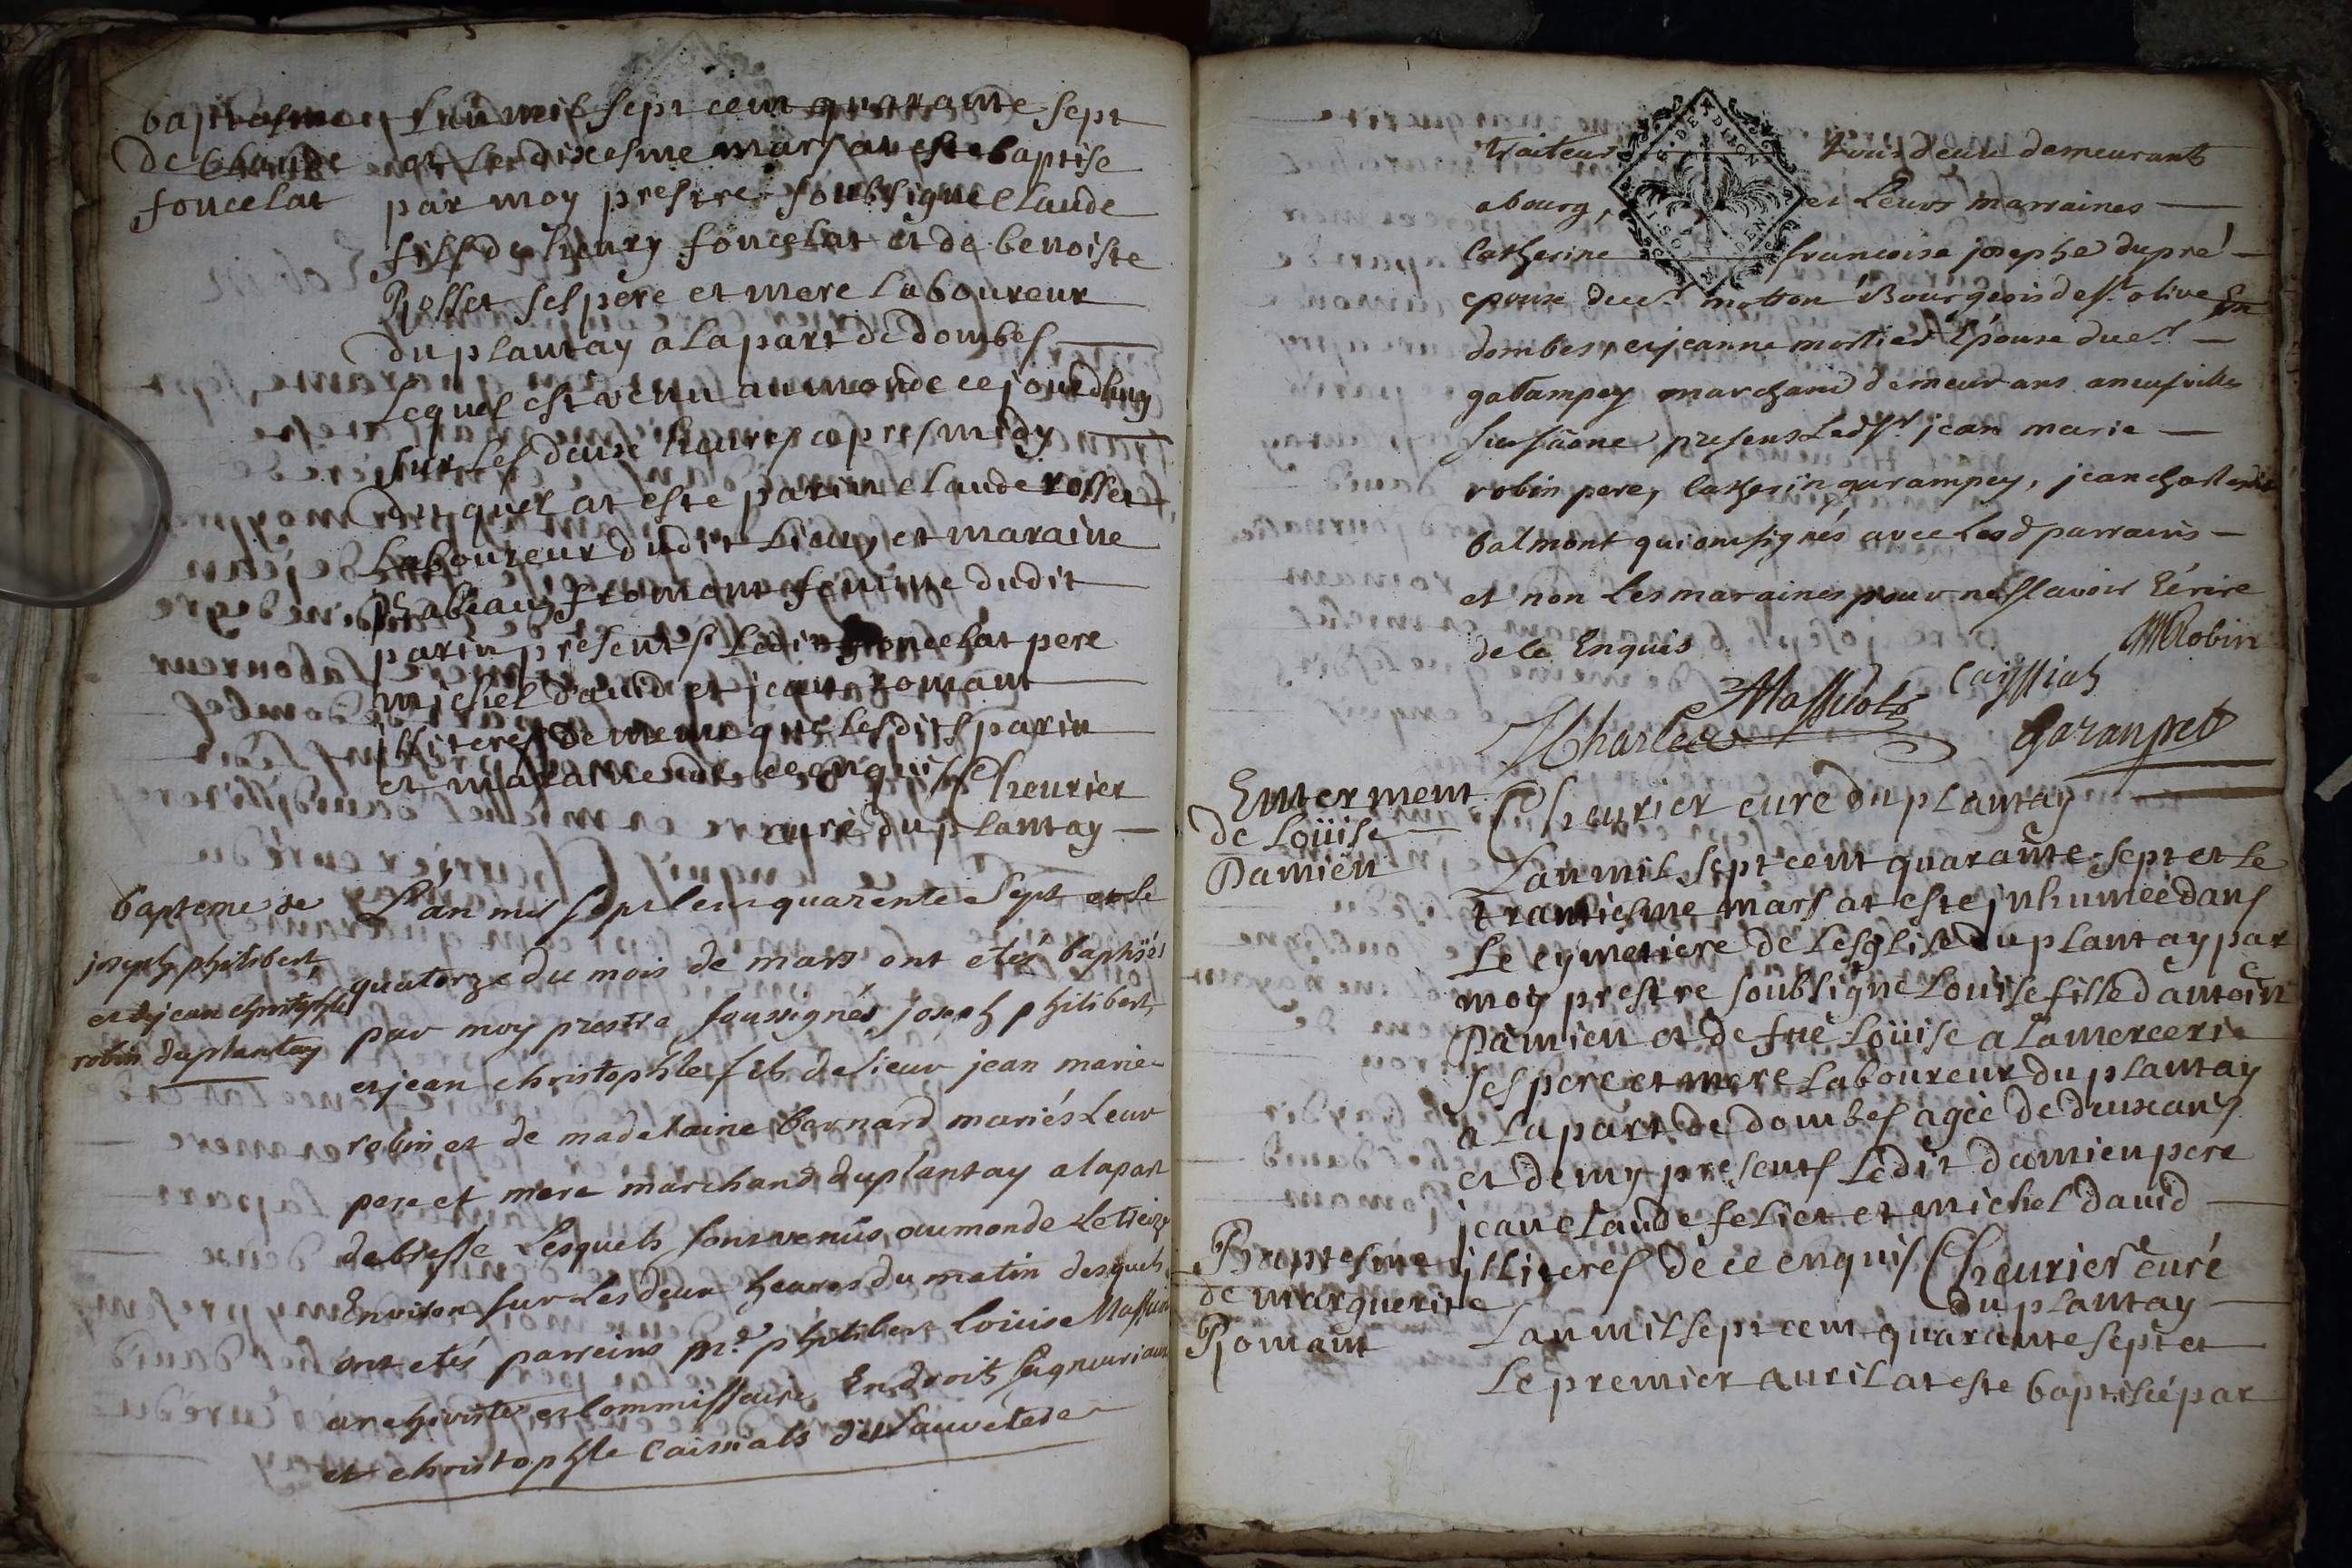 baptesme
de Claude
foncelat
L'an mil sept cent quarante sept
et le dixesme mars at este baptise
par moy prestre soubsigne Claude
fils de hieury foncelat et de benoiste
Rosset ses pere et mere laboureur
du plantay a la part de dombes
Lequel est venu au monde ce jourdhuy
sur les deux heures apres midy
duquel at este parin claude rosset
Laboureur dudit Lieu et maraine
fromont femme dudit
parin presents ledit foncelat pere
michel david et jean romant
illiteres de meme que lesdits parin
et maraine de ce enquis Cheurier
curé du plantay
bapteme de
joseph philibert
et de jean christophle
robin du plantay
L'an mil sept cent quarente sept et le
quatorze du mois de mars ont etés baptisés
par moy prestre soussignés joseph philibert
et jean christophle fils de sieur jean marie
robin et de madelaine barnard mariés leur
pere et mere marchand du plantay a la part
de bresse Lesquels sont venus au monde le treize
Environ sur les deux heures du matin desquels
ont etés parreins mr philibert louise
archiviste et Commissaire En droits seigneuriaux
et christophle
traiteur tous deux demeurants
a bourg, et leurs marraines
Catherine francoise josephe dupré
epouse du sr motton Bourgeois de st olive En
dombes, et jeanne mortier Epouse du sr
galampey marchand demeurans a neufville
sur saone presens ledt sr jean marie
robin pere, Catherin garampey, jean charle
balmont qui ont signés avec lesd parrains
et non les maraines pour ne sçavoir Eérire
de ce Enquis
JM Robin
Cayssials
Massiot
JCharle
Garanpet
Cheurier curé du plantay
Enterment
de Loüise
Damien
L'an mil sept cent quarante sept et le
trantiesme mars at este jnhumeé dans
Le cymetiere de Lesglise du plantay par
moy prestre soubsigné Louise fille d'antoine
Damien et de fue Loüise a Lamercerie
ses pere et mere laboureur du plantay
a la part de dombes ageé de deux ans
et demy presents ledit damien pere
jean claude feliet et michel david
illiteres de ce enquis Cheurier curé
du plantay
Baptesme
de marguerite
Romant
L'an mil sept cent quarante sept et
Le premier auril at este baptiseé par